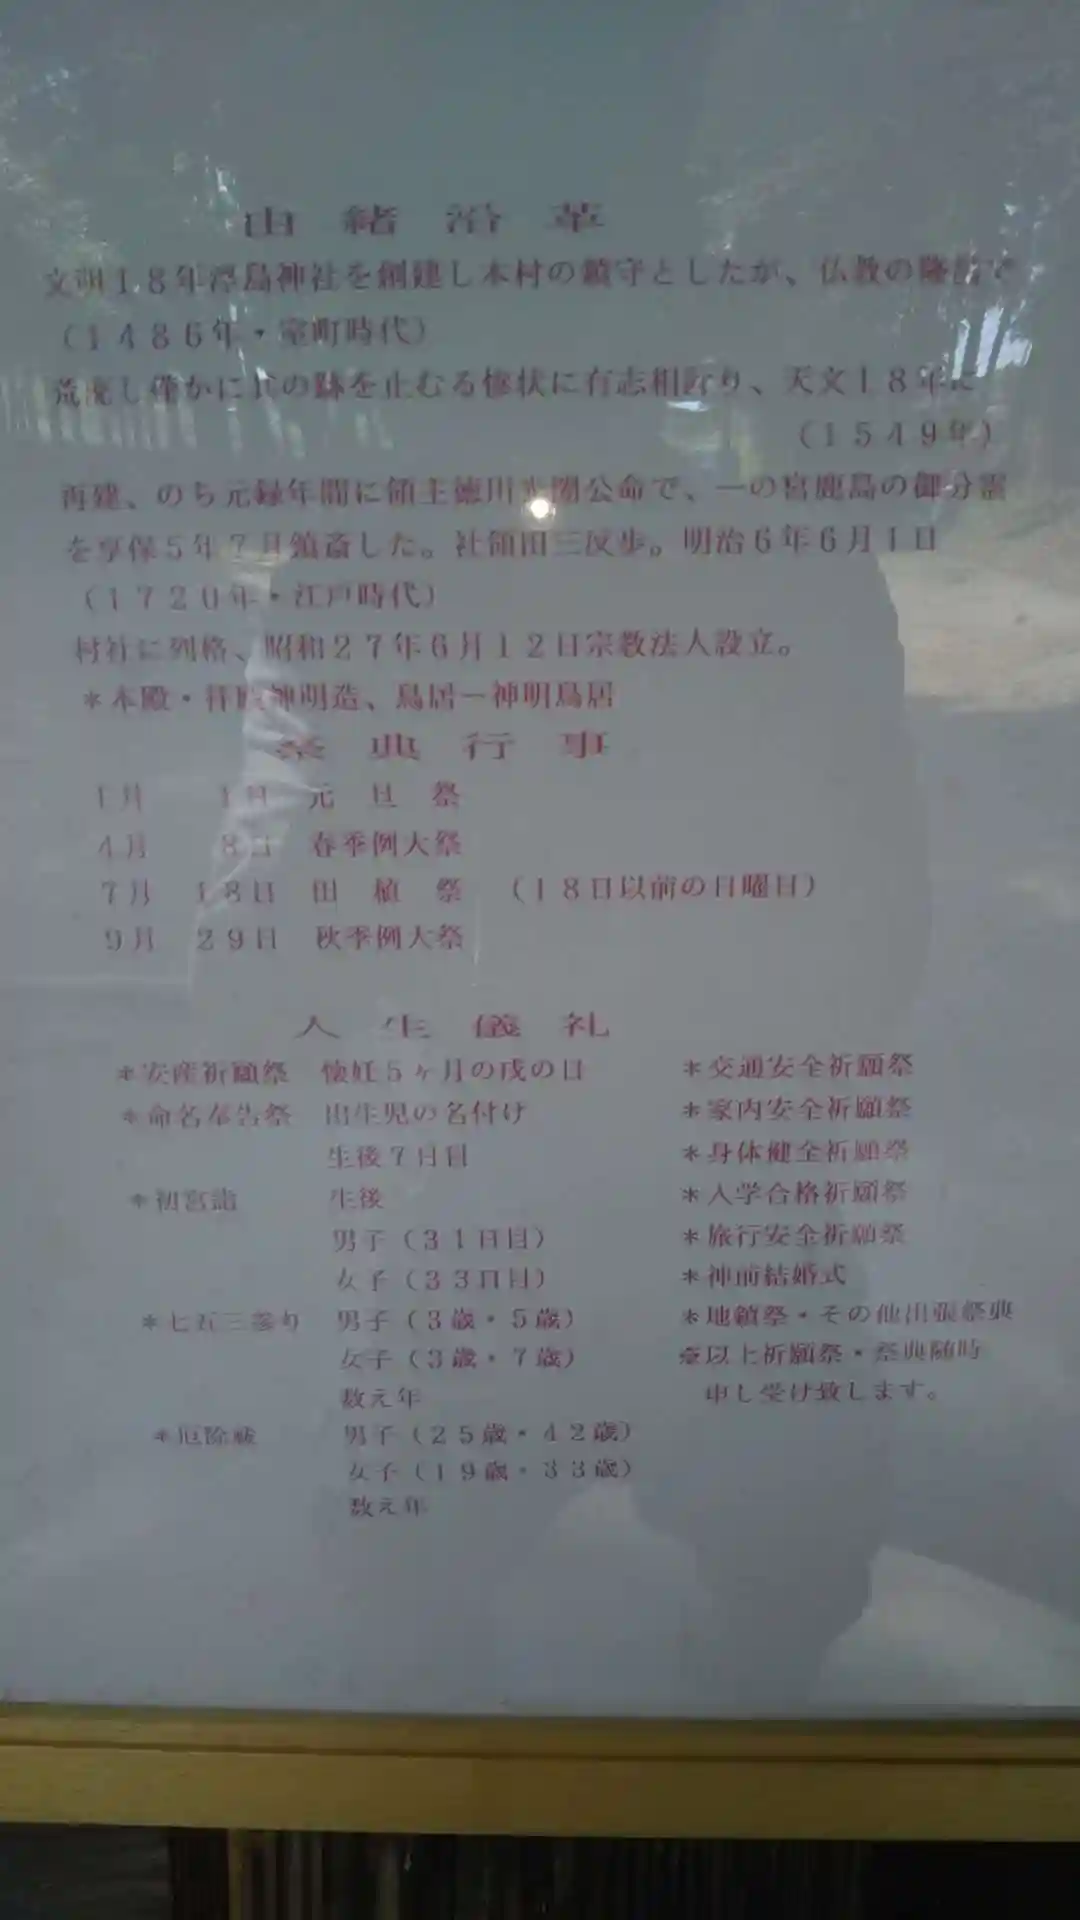 由緒沿革
文明18年浮島神社を創建し本村の鎮守としたが、仏教の隆盛で
(1486年・室町時代)
荒廃し僅かに其の跡を止むる惨状に有志相計り、天文18年に
(1549年)
再建、のち元録年間に領主徳川光圀公命で、一の宮鹿島の御分霊
を享保5年7月鎮斎した。社領田三反歩。明治6年6月1日
(1720年・江戸時代)
村社に列格、昭和27年6月12日宗教法人設立。
*本殿・拝殿神明造、鳥居-神明鳥居
祭典行事
1月 1日 元旦祭
4月 8日 春季例大祭
7月 18日 田植祭 (18日以前の日曜日)
9月 29日 秋季例大祭
人生儀礼
*安産祈願祭 懐妊5ヶ月の戌の日
*命名奉告祭 出生児の名付け
生後7日目
*初宮詣 生後
男子(31日目)
女子(33日目)
*七五三参り 男子(3歳・5歳)
女子(3歳・7歳)
数え年
*厄除祓 男子(25歳・42歳)
女子(19歳・33歳)
数え年
*交通安全祈願祭
*家内安全祈願祭
*身体健全祈願祭
*入学合格祈願祭
*旅行安全祈願祭
*神前結婚式
*地鎮祭・その他出張祭典
※以上祈願祭・祭典随時
申し受け致します。